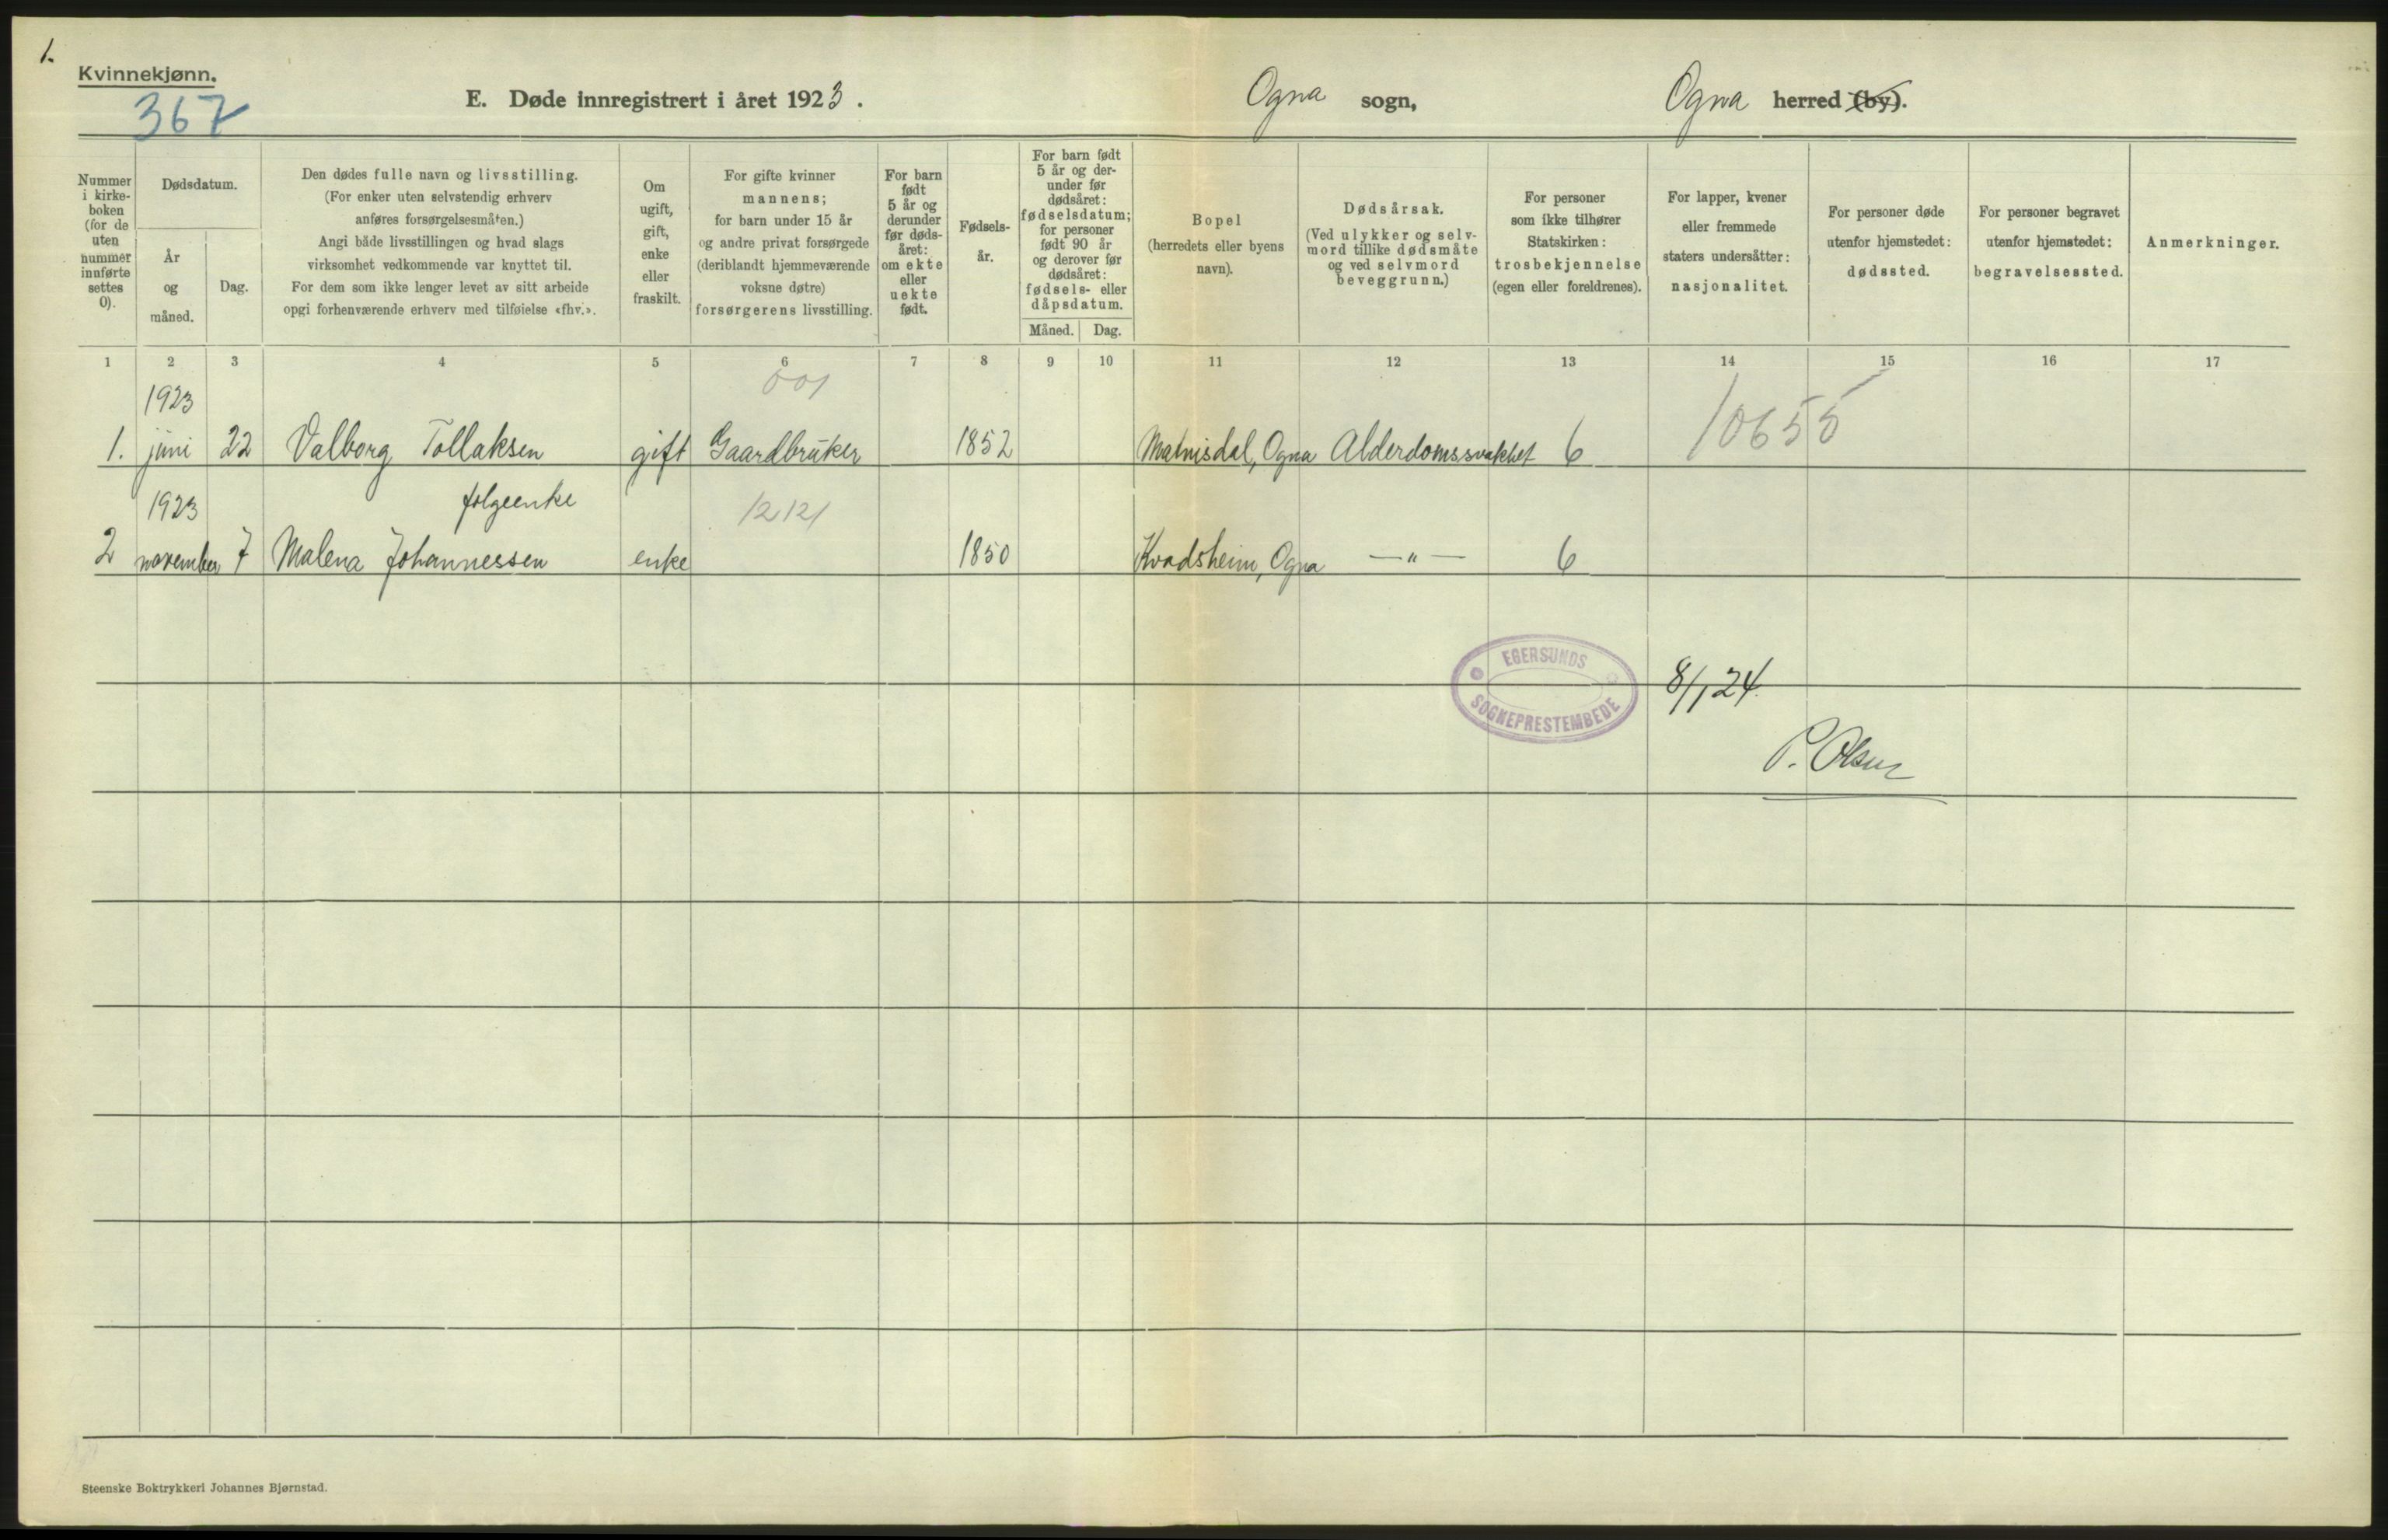 1.
Kvinnekjønn.
367
E. Døde innregistrert i året 1923.
Ogna sogn,
Ogna herred (by).
Nummer
i kirke-
boken
(for de
uten
nummer
innførte
settes
0).
Dødsdatum.
År
og
måned.
Dag.
Den dødes fulle navn og livsstilling.
(For enker uten selvstendig erhverv
anføres forsørgelsesmåten.)
Angi både livsstillingen og hvad slags
virksomhet vedkommende var knyttet til.
For dem som ikke lenger levet av sitt arbeide
opgi forhenværende erhverv med tilføielse «fhv.».
Om
ugift,
gift,
enke
eller
fraskilt.
For gifte kvinner
mannens;
for barn under 15 år
og andre privat forsørgede
(deriblandt hjemmeværende
voksne døtre)
forsørgerens livsstilling.
For barn
født
5 år og
derunder
før døds-
året:
om ekte
eller
uekte
født.
Fødsels-
år.
For barn født
5 år og der-
under før
dødsåret:
fødselsdatum;
for personer
født 90 år
og derover før
dødsåret:
fødsels- eller
dåpsdatum.
Måned. Dag.
Bopel
(herredets eller byens
navn).
Dødsårsak.
(Ved ulykker og selv-
mord tillike dødsmåte
og ved selvmord
beveggrunn.)
For personer
som ikke tilhører
Statskirken:
trosbekjennelse
(egen eller foreldrenes).
For lapper, kvener
eller fremmede
staters undersåtter:
nasjonalitet.
For personer døde
utenfor hjemstedet:
dødssted.
For personer begravet
utenfor hjemstedet:
begravelsessted.
Anmerkninger.
1 2 3 4 5 6 7 8 9 10 11 12 13 14 15 16 17
1923 001
1. juni 22 Valborg Tollaksen gift Gaardbruker 1852 Matnisdal, Ogna Alderdomssvakhet 6 10655
1923 folgeenke 1212/
2 november 7 Malena Johannessen enke 1850 Kvadsheim, Ogna —"— 6
EGERSUNDS
SOGNEPRESTEMBEDE
8/1 24.
P. Olsen
Steenske Boktrykkeri Johannes Bjørnstad.